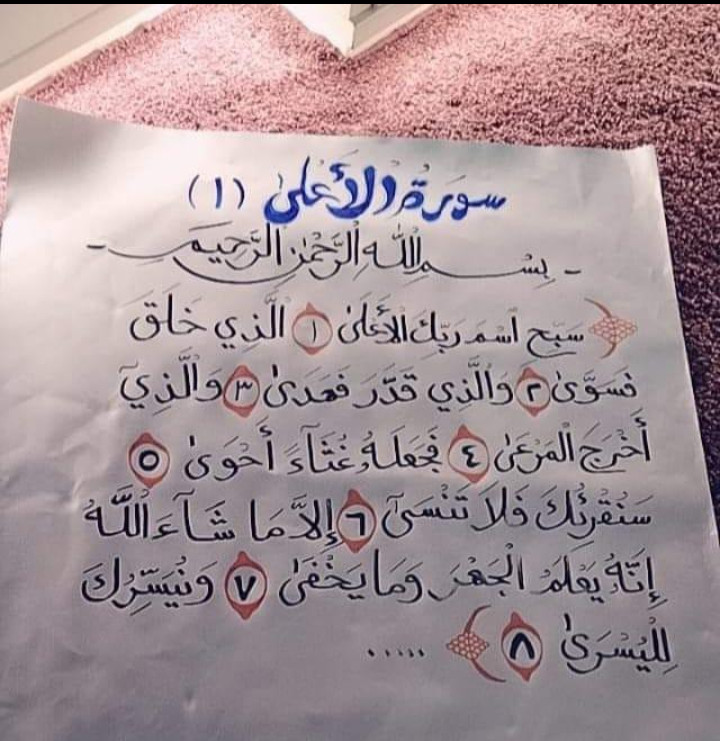 سورة الأعلى (١)
- بِسْمِ اللَّهِ الرَّحْمَٰنِ الرَّحِيمِ -
سَبِّحِ اسْمَ رَبِّكَ الْأَعْلَىٰ ١ الَّذِي خَلَقَ
فَسَوَّىٰ ٢ وَالَّذِي قَدَّرَ فَهَدَىٰ ٣ وَالَّذِيٓ
أَخْرَجَ الْمَرْعَىٰ ٤ فَجَعَلَهُ غُثَآءً أَحْوَىٰ ٥
سَنُقْرِئُكَ فَلَا تَنْسَىٰٓ ٦ إِلَّا مَا شَآءَ اللَّهُ
إِنَّهُ يَعْلَمُ الْجَهْرَ وَمَا يَخْفَىٰ ٧ وَنُيَسِّرُكَ
لِلْيُسْرَىٰ ٨ .....